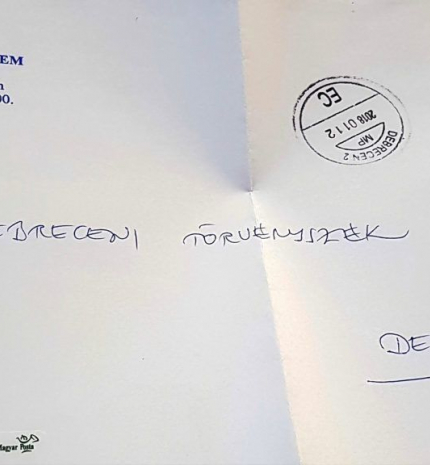 EM
00.
DEBRECEN 2
MP
2018 01 12
EC
EBRECENI TÖRVÉNYSZÉK
DE
Magyar Posta